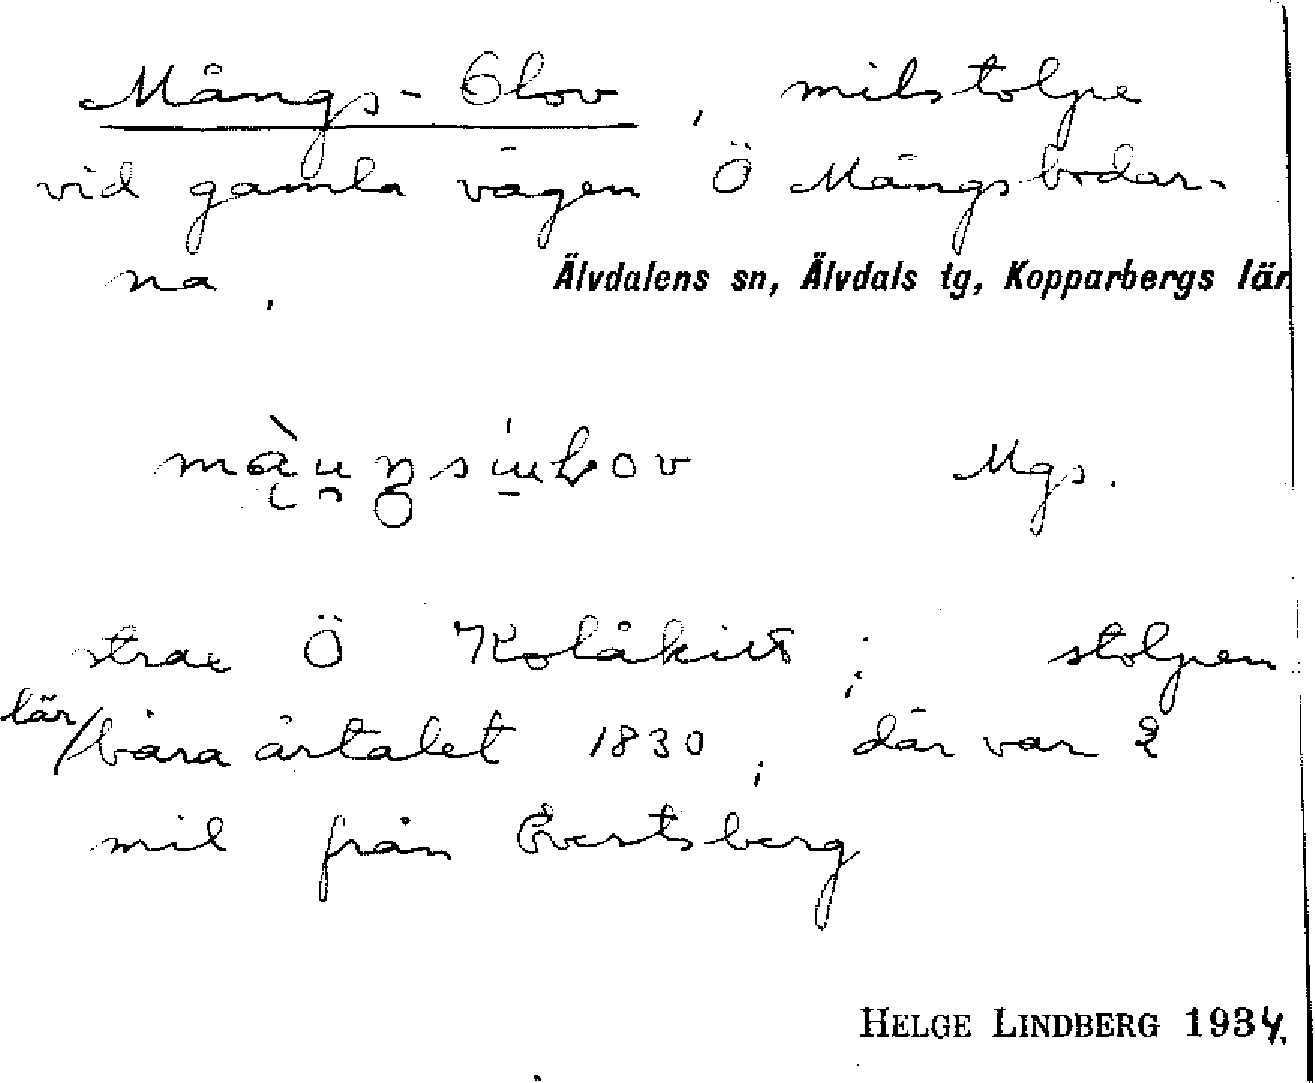 Mångs-Olov, milstolpe
vid gamla vägen Ö Mångsbodar-
na,
Älvdalens sn, Älvdals tg, Kopparbergs län
Mgs.
strax Ö Kolåkitt; stolpen
lär/bära årtalet 1830; där var 2
mil från Evertsberg
HELGE LINDBERG 1934.